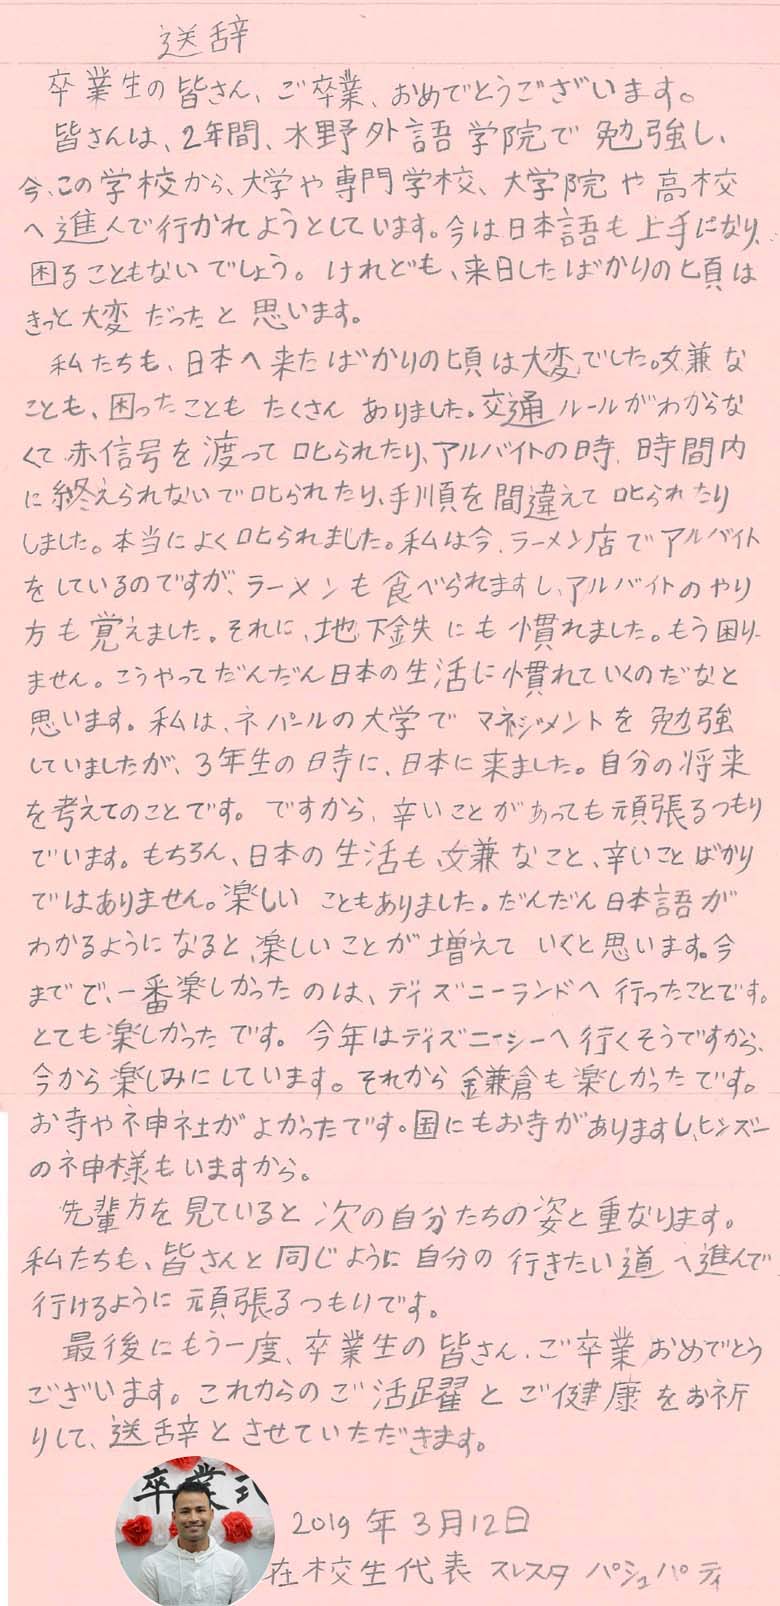 送辞
卒業生の皆さん、ご卒業、おめでとうございます。
皆さんは、2年間、水野外語学院で勉強し、
今、この学校から、大学や専門学校、大学院や高校
へ進んで行かれようとしています。今は日本語も上手になり、
困ることもないでしょう。けれども、来日したばかりの頃は
きっと大変だったと思います。
私たちも、日本へ来たばかりの頃は大変でした。嫌な
ことも、困ったこともたくさんありました。交通ルールがわからな
くて赤信号を渡って叱られたり、アルバイトの時、時間内
に終えられないで叱られたり、手順を間違えて叱られたり
しました。本当によく叱られました。私は今、ラーメン店でアルバイト
をしているのですが、ラーメンも食べられますし、アルバイトのやり
方も覚えました。それに、地下鉄にも慣れました。もう困り
ません。こうやってだんだん日本の生活に慣れていくのだなと
思います。私は、ネパールの大学でマネジメントを勉強
していましたが、3年生の時に、日本に来ました。自分の将来
を考えてのことです。ですから、辛いことがあっても頑張るつもり
でいます。もちろん、日本の生活も嫌なこと、辛いことばかり
ではありません。楽しいこともありました。だんだん日本語が
わかるようになると、楽しいことが増えていくと思います。今
までで、一番楽しかったのは、ディズニーランドへ行ったことです。
とても楽しかったです。今年はディズニーシーへ行くそうですから、
今から楽しみにしています。それから鎌倉も楽しかったです。
お寺や神社がよかったです。国にもお寺がありますし、ヒンズー
の神様もいますから。
先輩方を見ていると次の自分たちの姿と重なります。
私たちも、皆さんと同じように自分の行きたい道へ進んで
行けるように頑張るつもりです。
最後にもう一度、卒業生の皆さん、ご卒業おめでとう
ございます。これからのご活躍とご健康をお祈
りして、送辞とさせていただきます。
卒業式
2019年3月12日
在校生代表 スレスタ パシュパティ